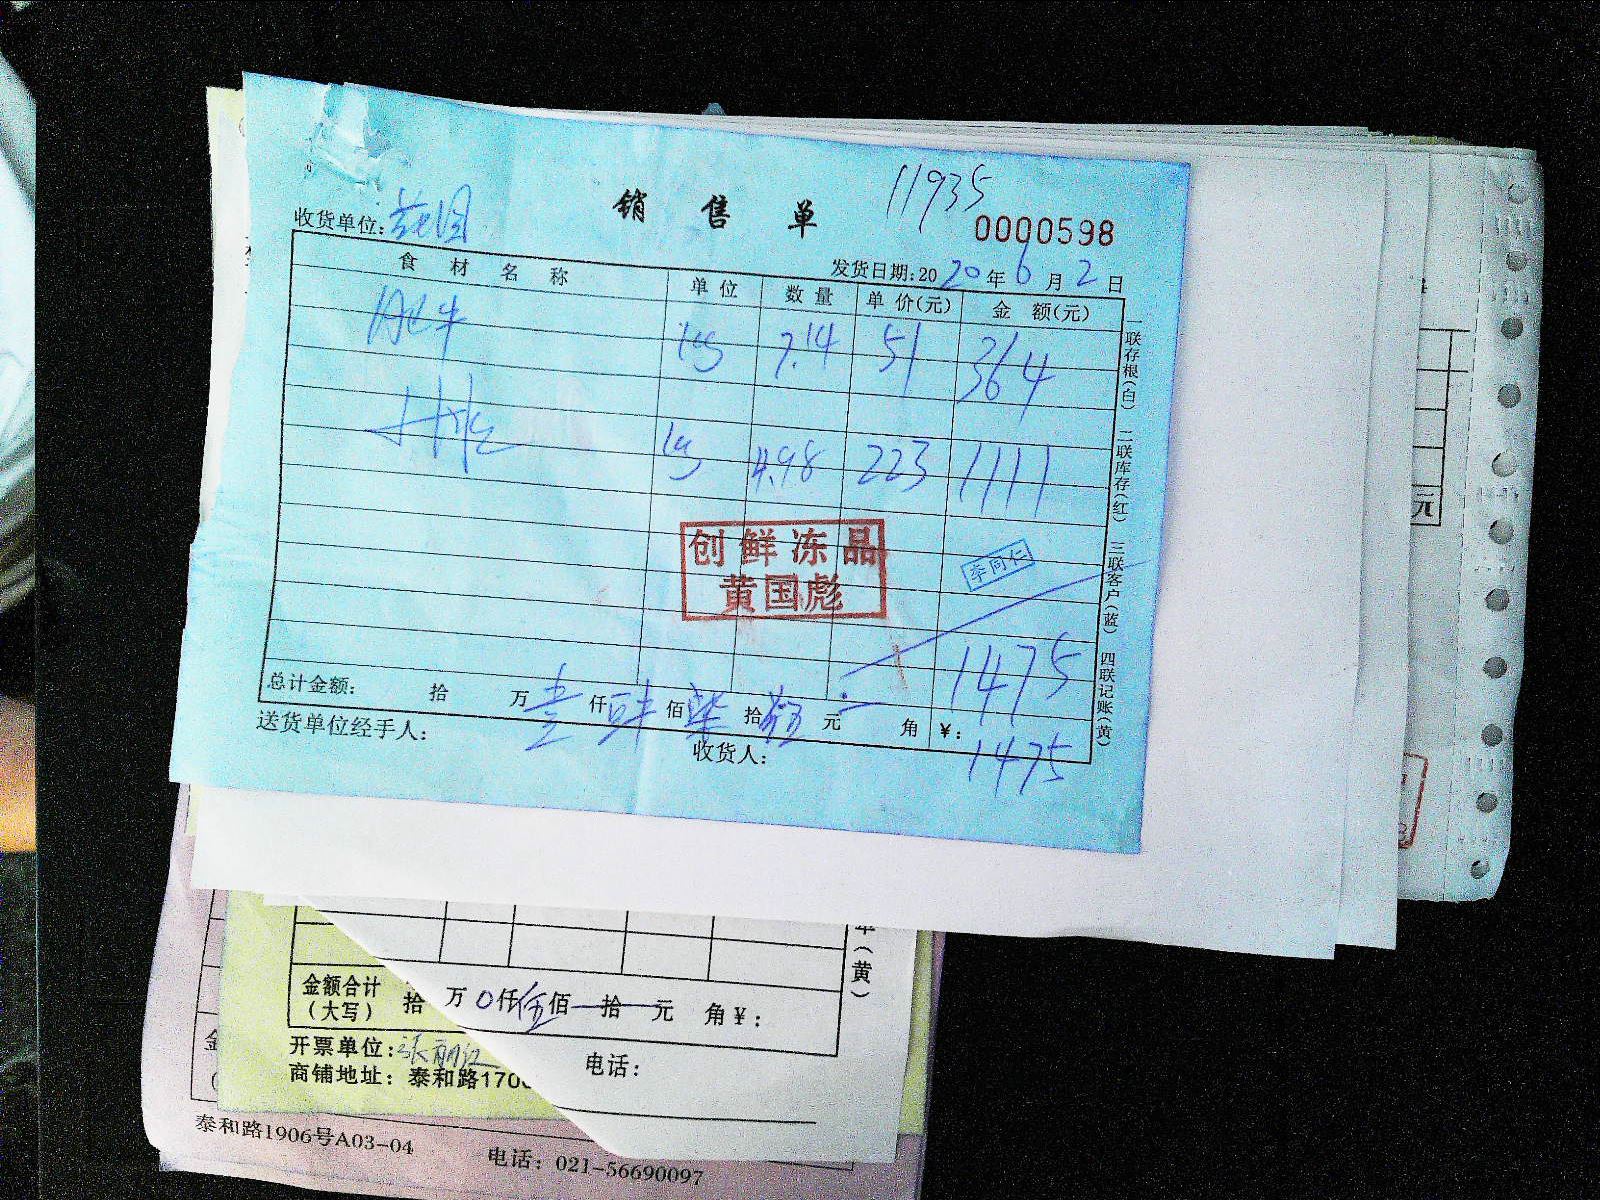 11935
销售单
0000598
收货单位:
发货日期:2020年6月2日
食材名称 单位 数量 单价(元) 金额(元)
肥牛 kg 7.14 51 364
kg 4.98 223 1111
创鲜冻品
黄国彪
李同仁
1475
总计金额: 拾 万壹仟肆佰柒拾伍元 角 ¥:1475
送货单位经手人: 收货人:
一联存根(白) 二联库存(红) 三联客户(蓝) 四联记账(黄)
元
(黄)
金额合计
(大写) 拾 万0仟伍佰 拾 元 角¥:
开票单位:张丽江 电话:
商铺地址:泰和路170
金
泰和路1906号A03-04 电话:021-56690097